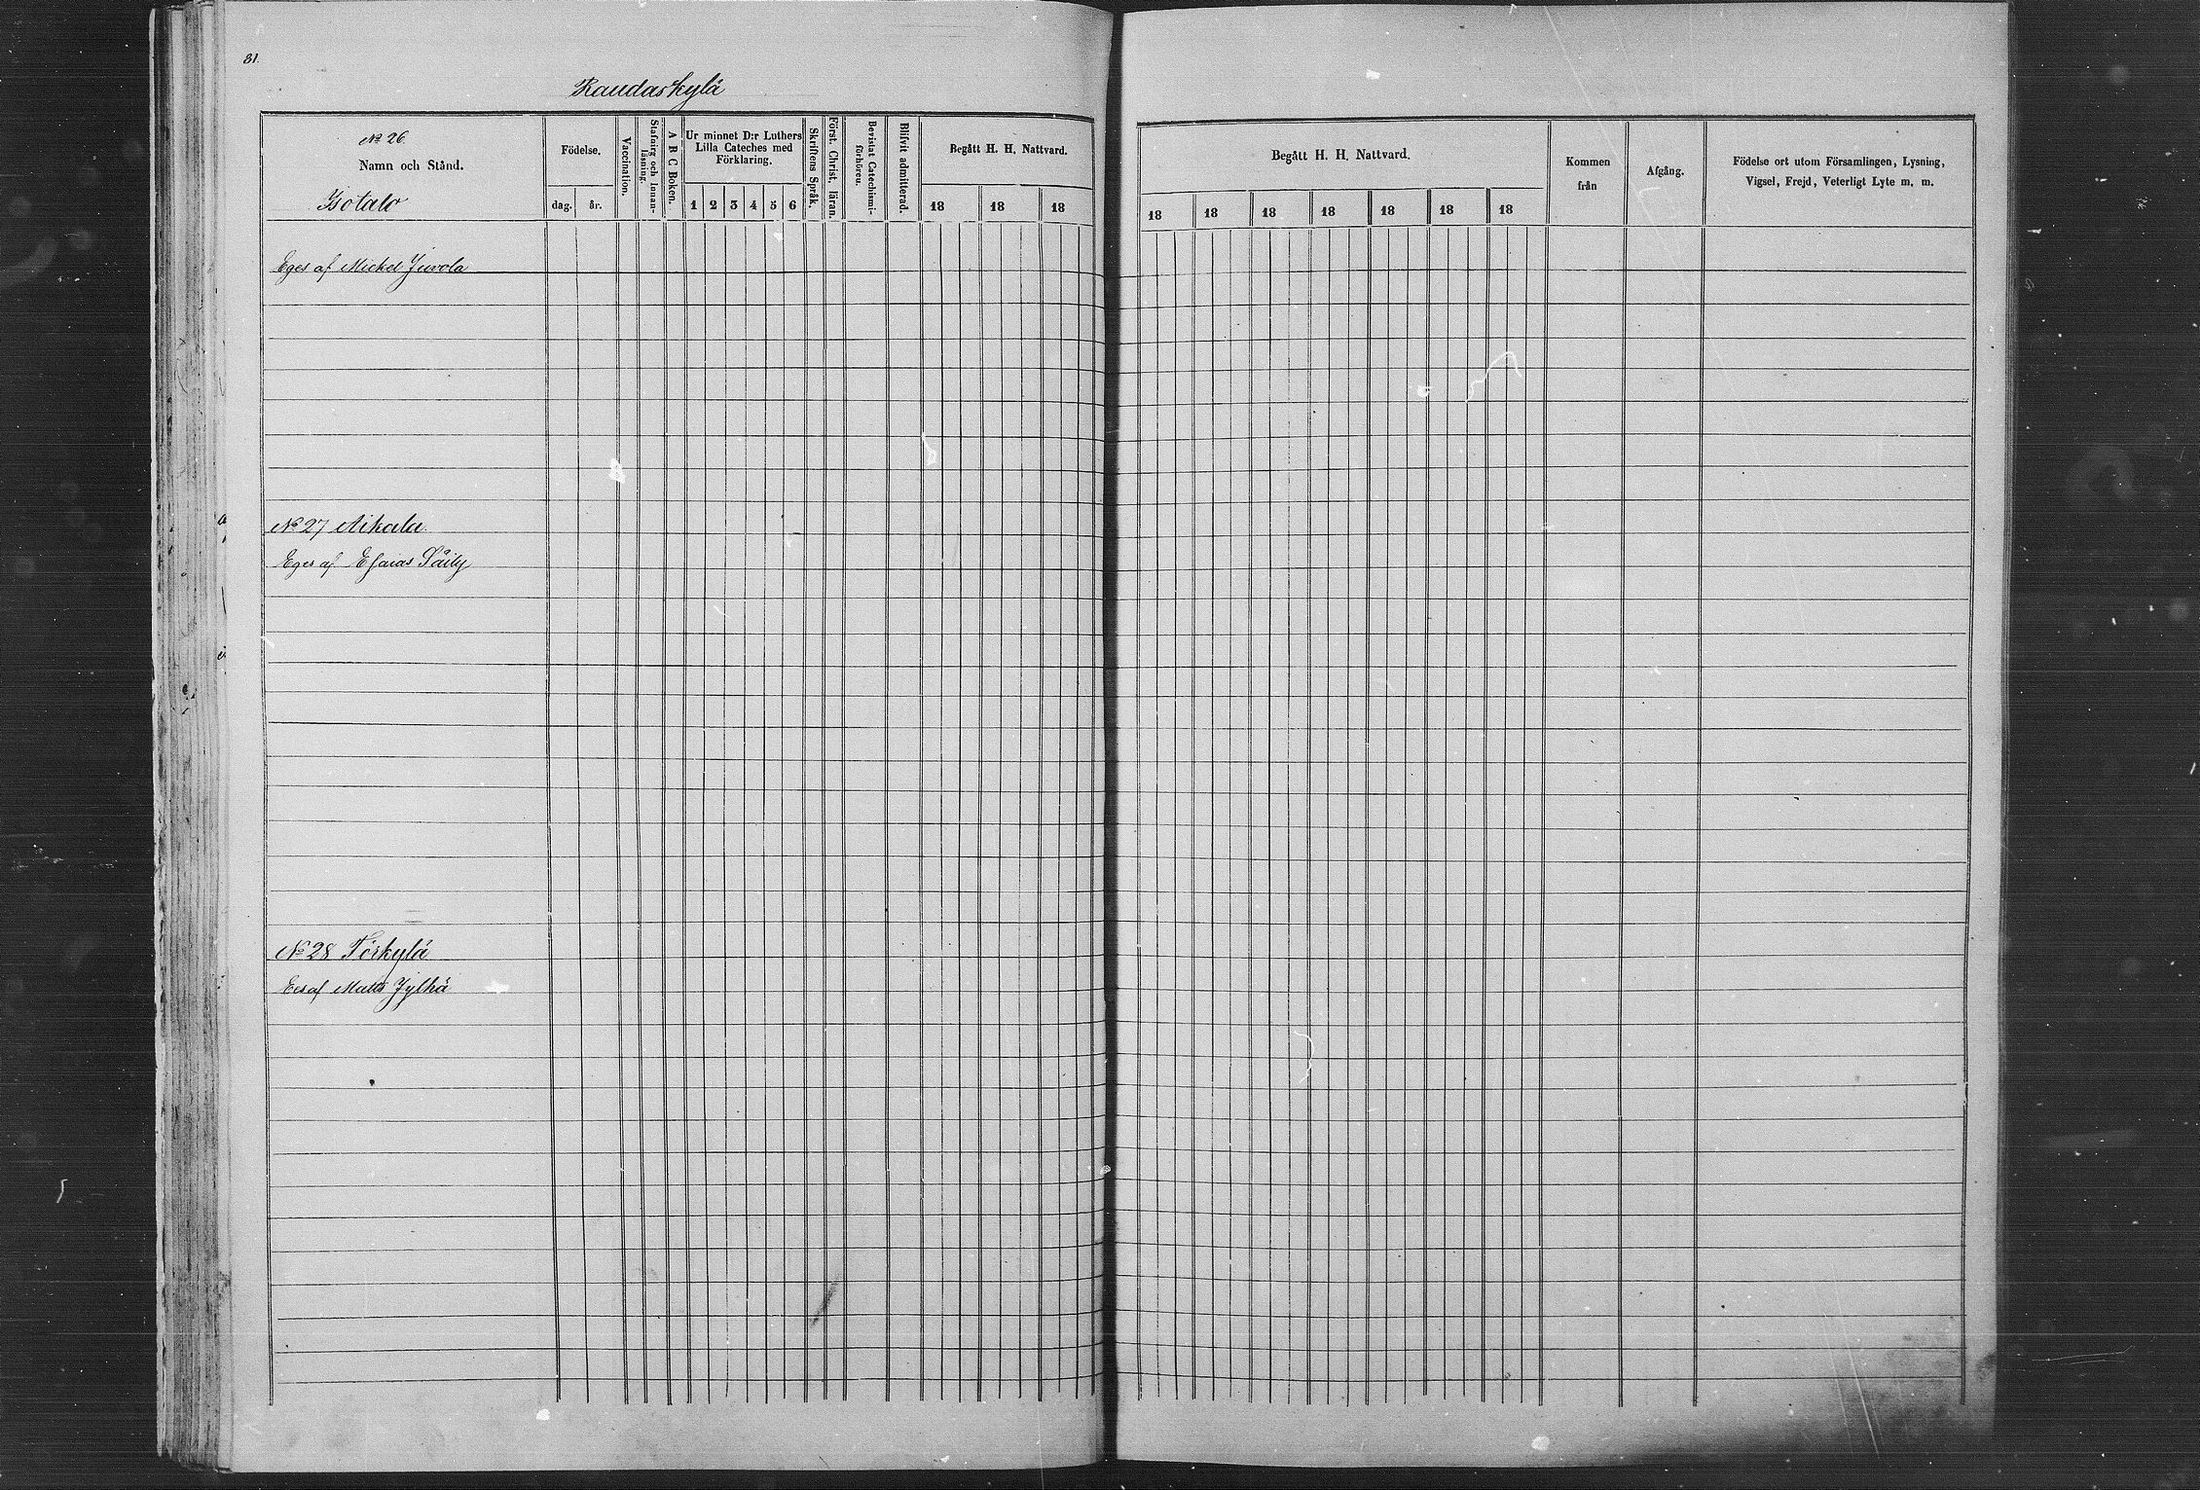 81.
Raudaskylä
No 26.
Namn och Stånd.
Isotalo
Födelse.
dag.
år.
Vaccination.
Stafning och Innan-
läsning.
A B C Boken.
Ur minnet D:r Luthers
Lilla Cateches med
Förklaring.
1 2 3 4 5 6
Skriftens Språk.
Först. Christ. läran.
Bevistat Catechismi-
förhören.
Blifvit admitterad.
Begått H. H. Nattvard.
18 18 18
Begått H. H. Nattvard.
18 18 18 18 18 18 18
Kommen
från
Afgång.
Födelse ort utom Församlingen, Lysning,
Vigsel, Frejd, Veterligt Lyte m. m.
Eges af Michel Juvola
No 27 Aikala.
Eges af Esaias Säily
No 28 Törkylä
af Matts Jylhä